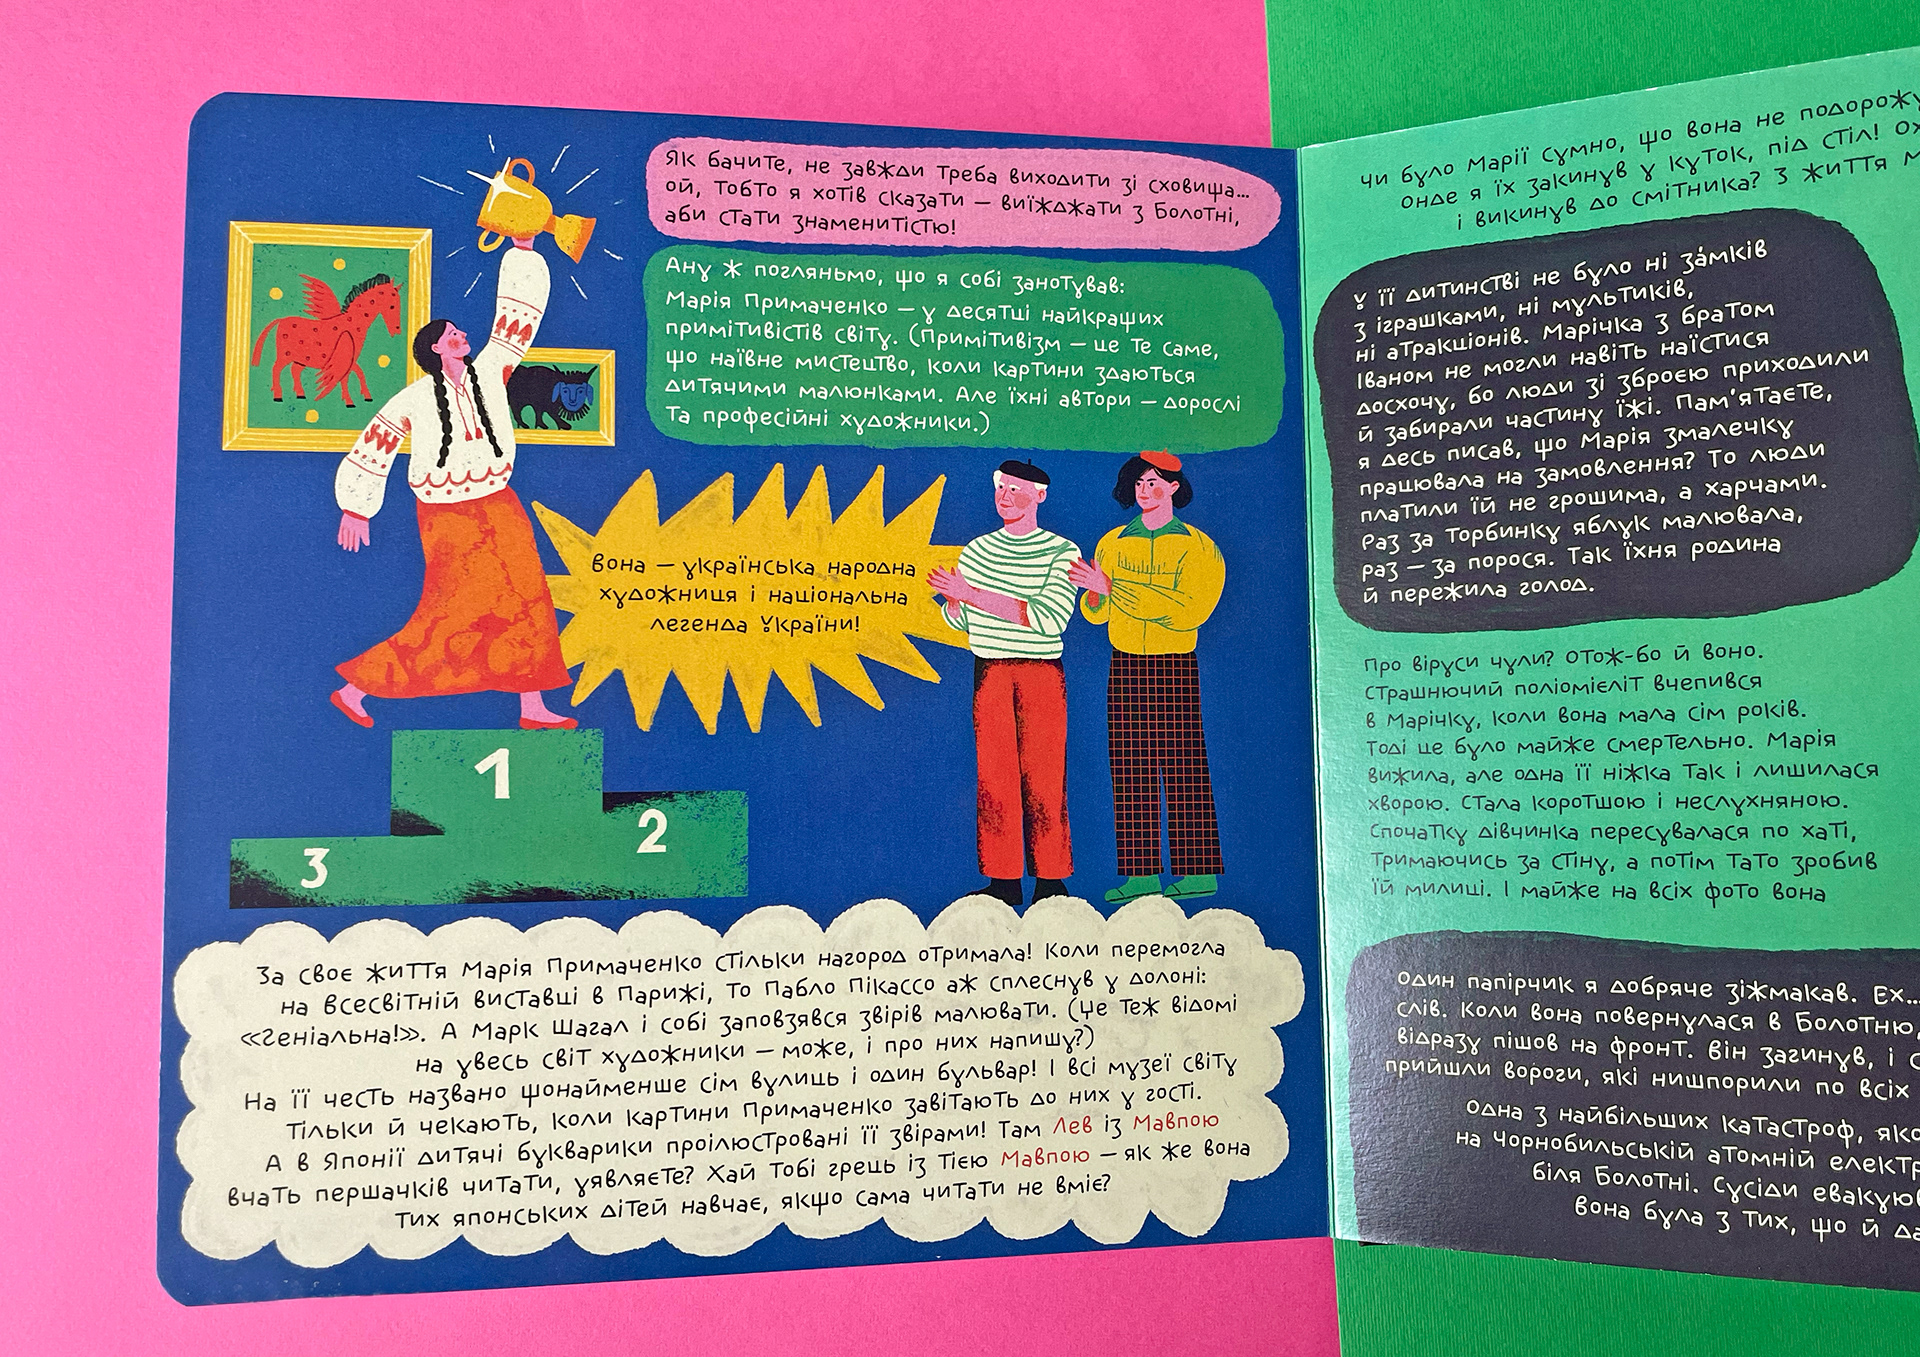 Як бачите, не завжди треба виходити зі сховища...
ой, тобто я хотів сказати — виїжджати з Болотні,
аби стати знаменитістю!
Ану ж погляньмо, що я собі занотував:
Марія Примаченко — у десятці найкращих
примітивістів світу. (Примітивізм — це те саме,
що наївне мистецтво, коли картини здаються
дитячими малюнками. Але їхні автори — дорослі
та професійні художники.)
Вона — українська народна
художниця і національна
легенда України!
1
2
3
За своє життя Марія Примаченко стільки нагород отримала! Коли перемогла
на Всесвітній виставці в Парижі, то Пабло Пікассо аж сплеснув у долоні:
«Геніальна!». А Марк Шагал і собі заповзявся звірів малювати. (Це теж відомі
на увесь світ художники — може, і про них напишу?)
На її честь названо щонайменше сім вулиць і один бульвар! І всі музеї світу
тільки й чекають, коли картини Примаченко завітають до них у гості.
А в Японії дитячі букварики проілюстровані її звірами! Там Лев із Мавпою
вчать першачків читати, уявляєте? Хай тобі грець із тією Мавпою — як же вона
тих японських дітей навчає, якщо сама читати не вміє?
чи було Марії сумно, що вона не подорожу
онде я їх закинув у куток, під стіл! Ох
і викинув до смітника? З життя М
У її дитинстві не було ні за́мків
з іграшками, ні мультиків,
ні атракціонів. Марічка з братом
Іваном не могли навіть наїстися
досхочу, бо люди зі зброєю приходили
й забирали частину їжі. Пам'ятаєте,
я десь писав, що Марія змалечку
працювала на замовлення? То люди
платили їй не грошима, а харчами.
Раз за торбинку яблук малювала,
раз — за порося. Так їхня родина
й пережила голод.
Про віруси чули? Отож-бо й воно.
Страшнючий поліомієліт вчепився
в Марічку, коли вона мала сім років.
Тоді це було майже смертельно. Марія
вижила, але одна її ніжка так і лишилася
хворою. Стала коротшою і неслухняною.
Спочатку дівчинка пересувалася по хаті,
тримаючись за стіну, а потім тато зробив
їй милиці. І майже на всіх фото вона
Один папірчик я добряче зіжмакав. Ех...
слів. Коли вона повернулася в Болотню,
відразу пішов на фронт. Він загинув, і с
прийшли вороги, які нишпорили по всіх
Одна з найбільших катастроф, яко
на Чорнобильській атомній електр
біля Болотні. Сусіди евакую
вона була з тих, що й да